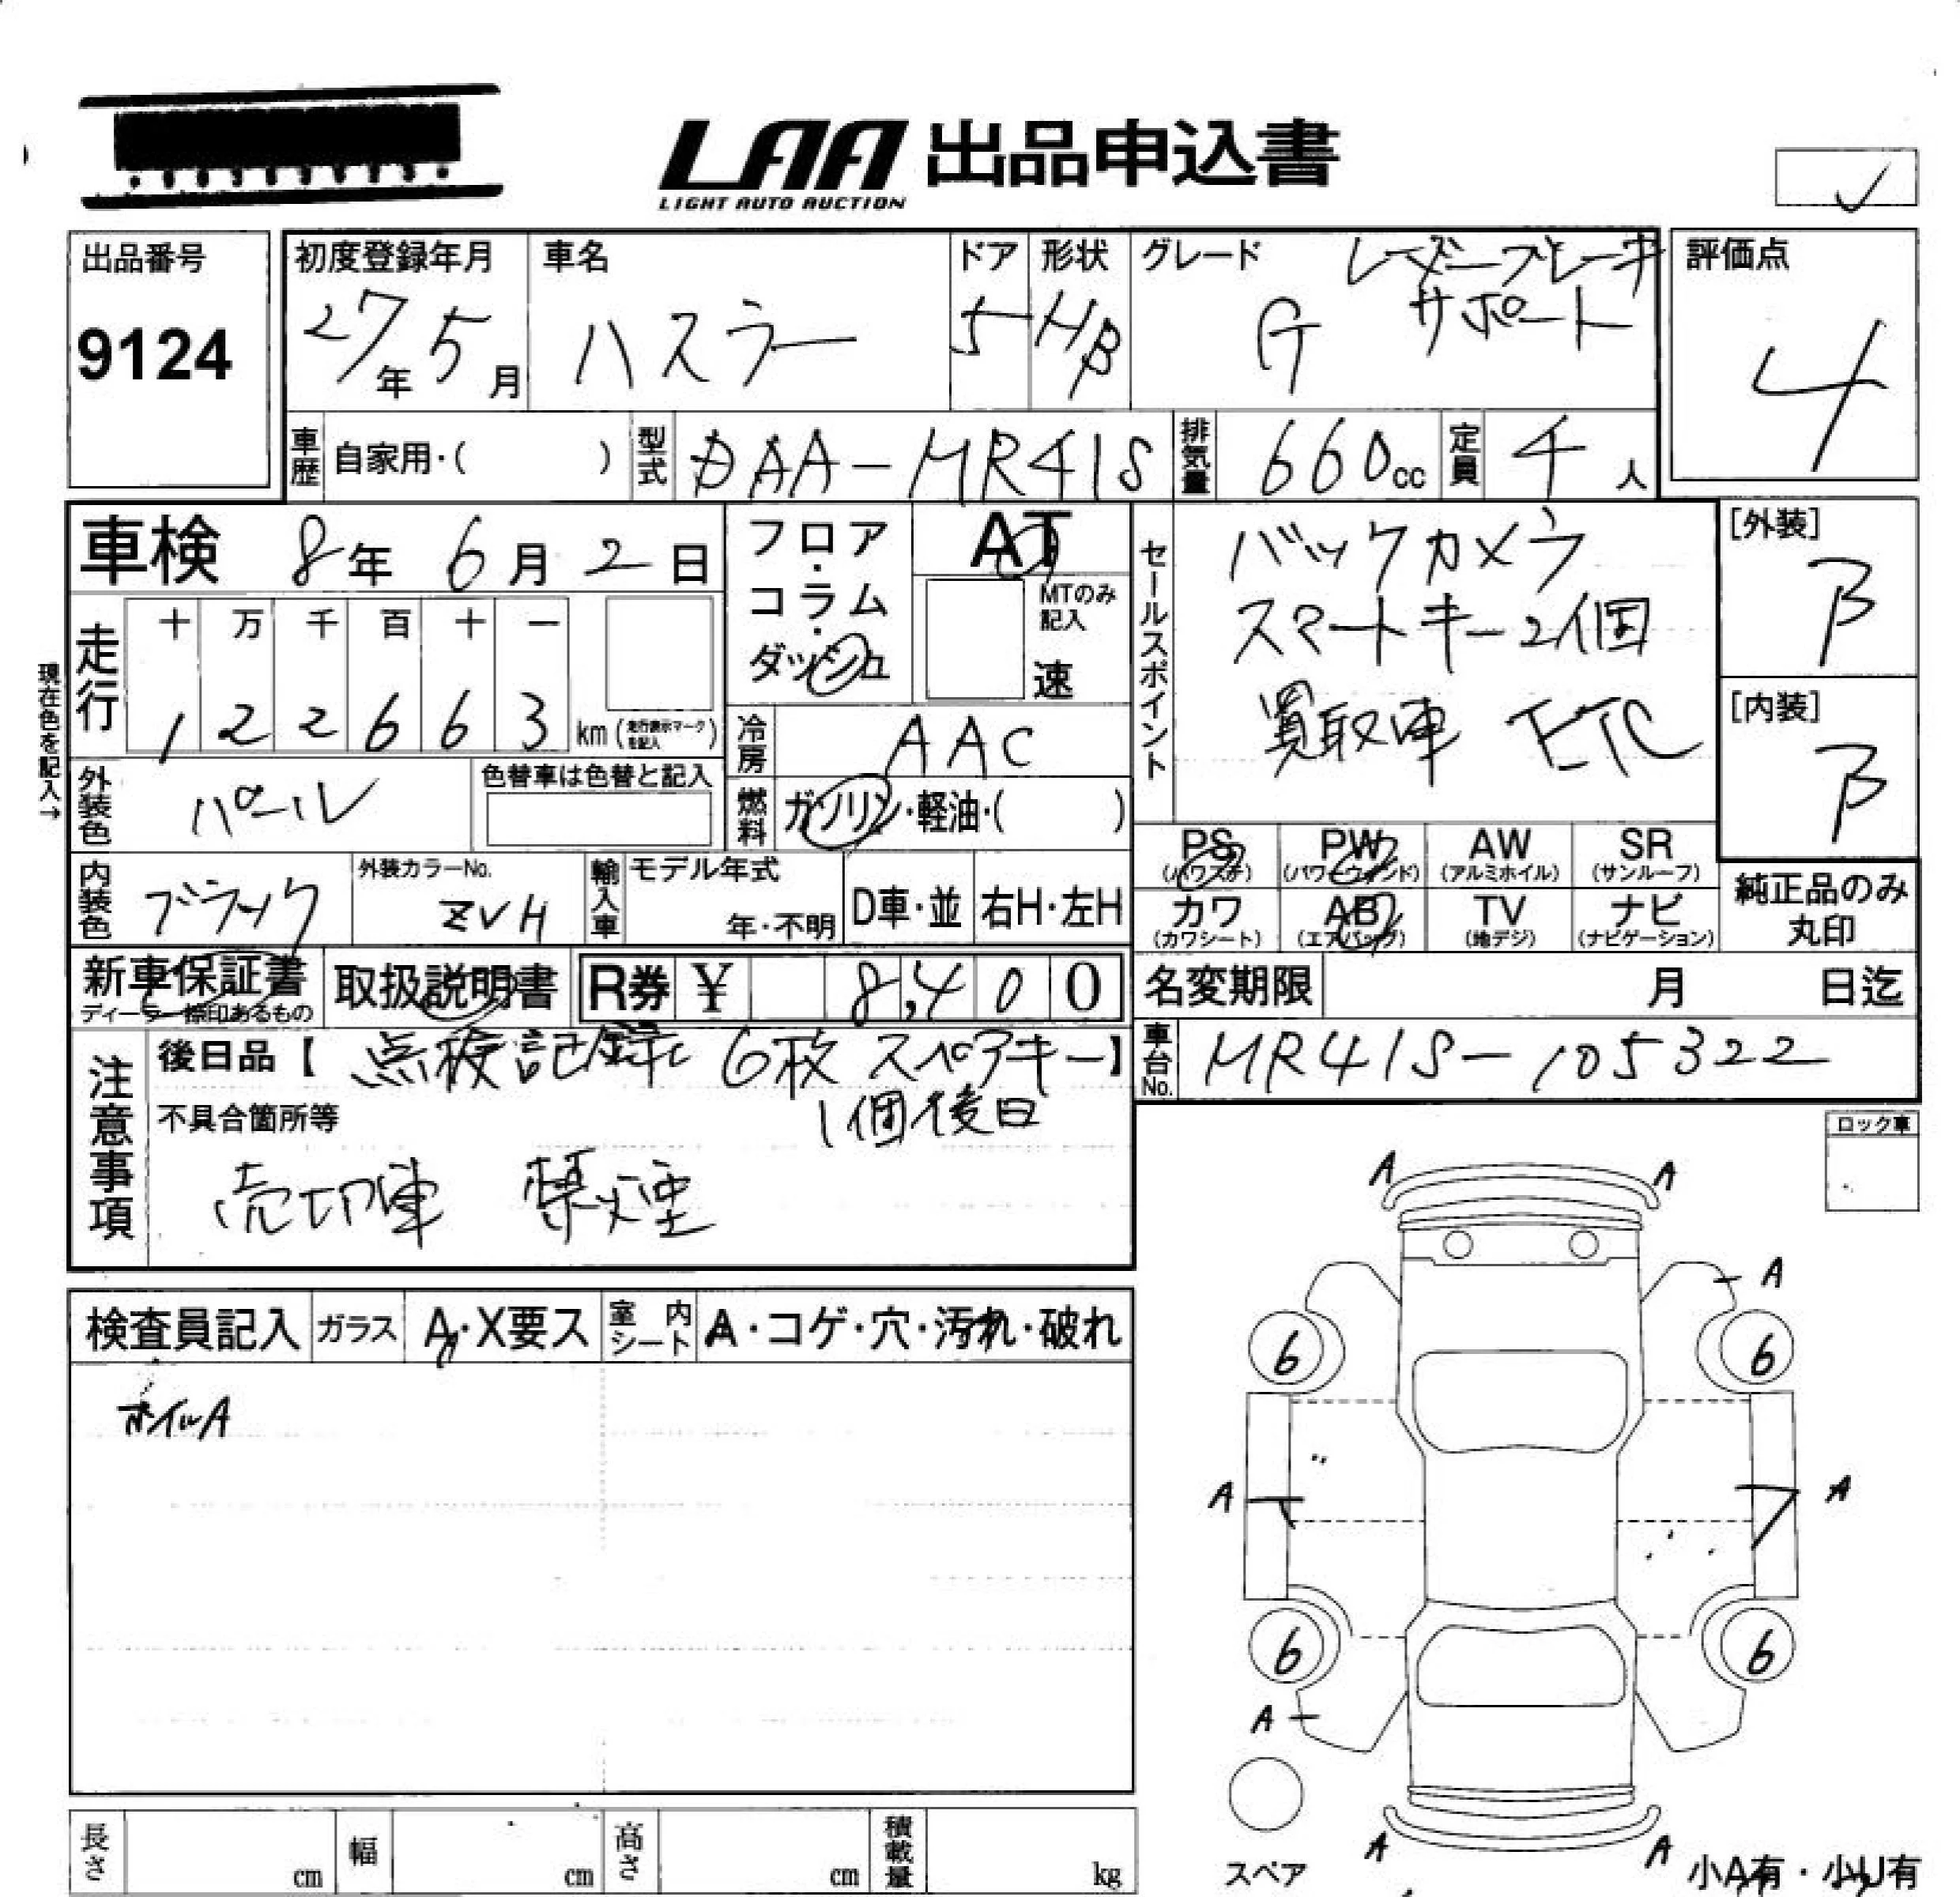 LAA 出品申込書
LIGHT AUTO AUCTION
出品番号
9124
初度登録年月
27年 5月
車名
ハスラー
ドア
5
形状
HB
グレード
G レーダーブレーキ
サポート
評価点
4
車歴 自家用・( )
型式 DAA-MR41S
排気量 660cc
定員 4人
車検 8年 6月 2日
現在色を記入→
走行
十 万 千 百 十 一
1 2 2 6 6 3 km (走行表示マークを記入)
フロア・
コラム・
ダッシュ
AT
MTのみ
記入
速
冷房 AAC
燃料 ガソリン・軽油・( )
外装色 パール
色替車は色替と記入
内装色 ブラック
外装カラーNo.
ZVH
輸入車 モデル年式
年・不明
D車・並 右H・左H
セールスポイント
バックカメラ
スマートキー2個
買取車 ETC
[外装]
B
[内装]
B
PS (パワステ) PW (パワーウィンド) AW (アルミホイル) SR (サンルーフ)
カワ (カワシート) AB (エアバッグ) TV (地デジ) ナビ (ナビゲーション)
純正品のみ
丸印
新車保証書
ディーラー捺印あるもの
取扱説明書
R券 ¥ 8,400
名変期限 月 日迄
車台No. MR41S-105322
注意事項
後日品【 点検記録 6枚 スペアキー】
1個後日
不具合箇所等
売切車 禁煙
ロック車
検査員記入 ガラス A・X要ス 室内シート A・コゲ・穴・汚れ・破れ
ホイルA
A A
A
6 6
A A
6 6
A
A A
スペア
小A有・小U有
長さ cm 幅 cm 高さ cm 積載量 kg